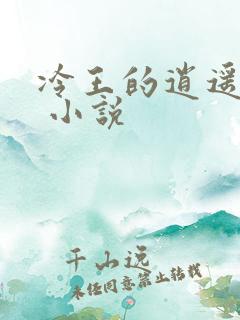 冷王的逍遥
小説
千山远
未经同意禁止转载